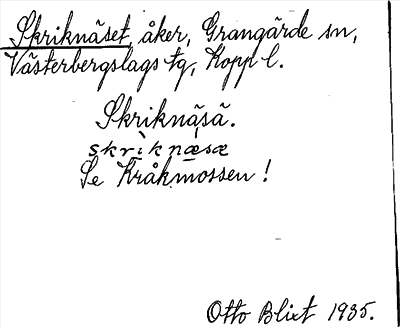 Skriknäset, åker, Grangärde sn,
Västerbergslags tg, Kopp l.
Skriknäsä.
skrìknæsæ
Se Kråkmossen!
Otto Blixt 1935.